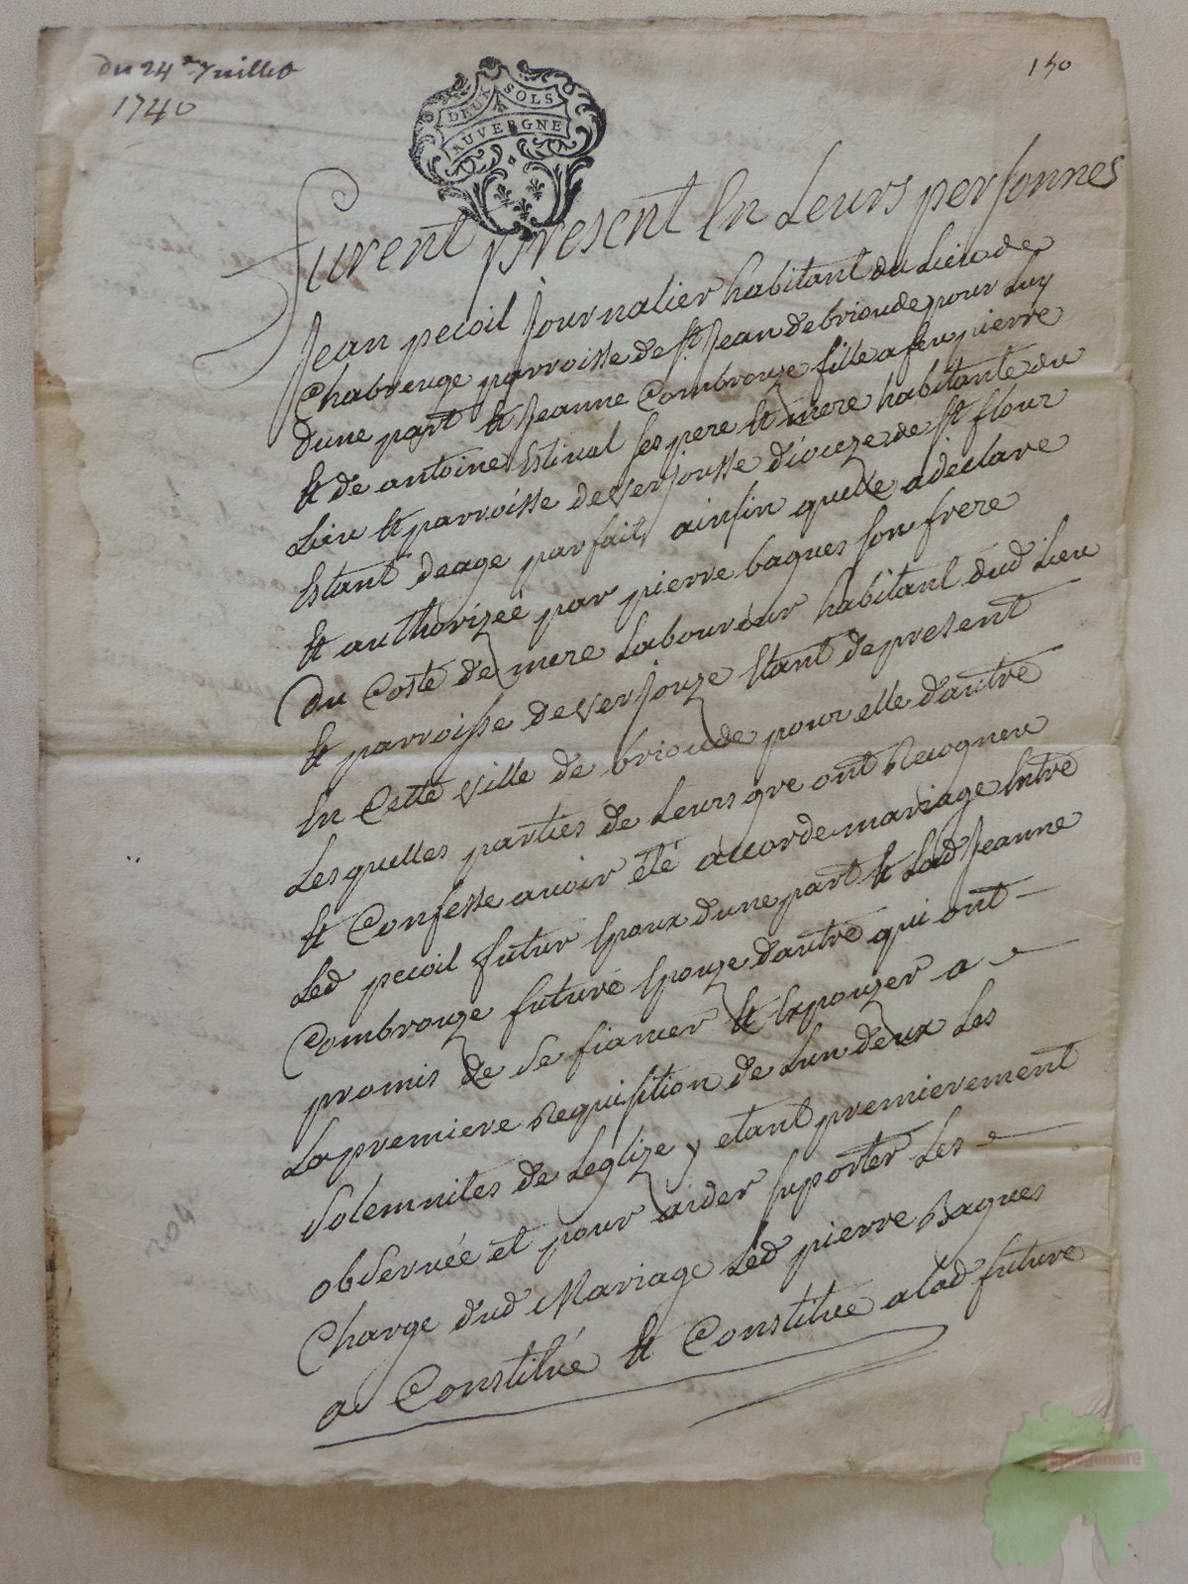 du 24e Juillet
1740
150
DEUX SOLS
AUVERGNE
Furent present En Leurs personnes
Jean pecoil Journalier habitant du Lieu de
Chabreuge parroisse de st Jean de brioude pour Luy
dune part et Jeanne Combrouze fille a feu pierre
et de antoine Estival ses pere et mere habitante du
Lieu et parroisse de verjousse dioceze de st flour
Estant deage parfait ainsin quelle a declare
et authorizeé par pierre bagues son frere
du Coste de mere Laboureur habitant dud Lieu
et parroisse de verjouze Etant de present
En Cette ville de brioude pour elle d'autre
Lesquelles parties de Leurs gre ont Recogneu
et Confesse avoir été accorde mariage Entre
Led pecoil futur Epoux dune part et Lad Jeanne
Combrouze future Epouze d'autre qui ont
promis de se fiancer et Expouzer a
La premiere Requisition de Lun deux Les
Solemnites de Leglize y etant premierement
observée et pour aider suporter Les
Charge dud Mariage Led pierre Bagues
a Constitué et Constitue a lad future